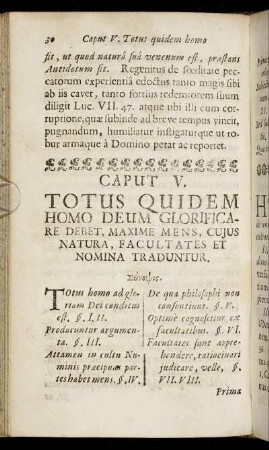 30 Caput V. Totus quidem homo
fit, ut quod naturâ suâ venenum est, præstans
Antidotum sit. Regenitus de fœditate pec-
catorum experientiâ edoctus tanto magis sibi
ab iis cavet, tanto fortius redemtorem suum
diligit Luc. VII. 47. atque ubi illi cum cor-
ruptione, quæ subinde ad breve tempus vincit,
pugnandum, humiliatur instigaturque ut ro-
bur armaque à Domino petat ac reportet.
CAPUT V.
TOTUS QUIDEM
HOMO DEUM GLORIFICA-
RE DEBET, MAXIME MENS, CUJUS
NATURA, FACULTATES ET
NOMINA TRADUNTUR.
Σύνοψις.
TOtus homo ad glo-
riam Dei conditus
est, §. I. II.
Producuntur argumen-
ta. §. III.
Attamen in cultu Nu-
minis præcipuas par-
tes habet mens. §. IV.
De qua philosophi non
consentiunt. §. V.
Optimè cognoscitur ex
facultatibus. §. VI.
Facultates sunt appre-
hendere, ratiocinari
judicare, velle, §.
VII. VIII.
Prima